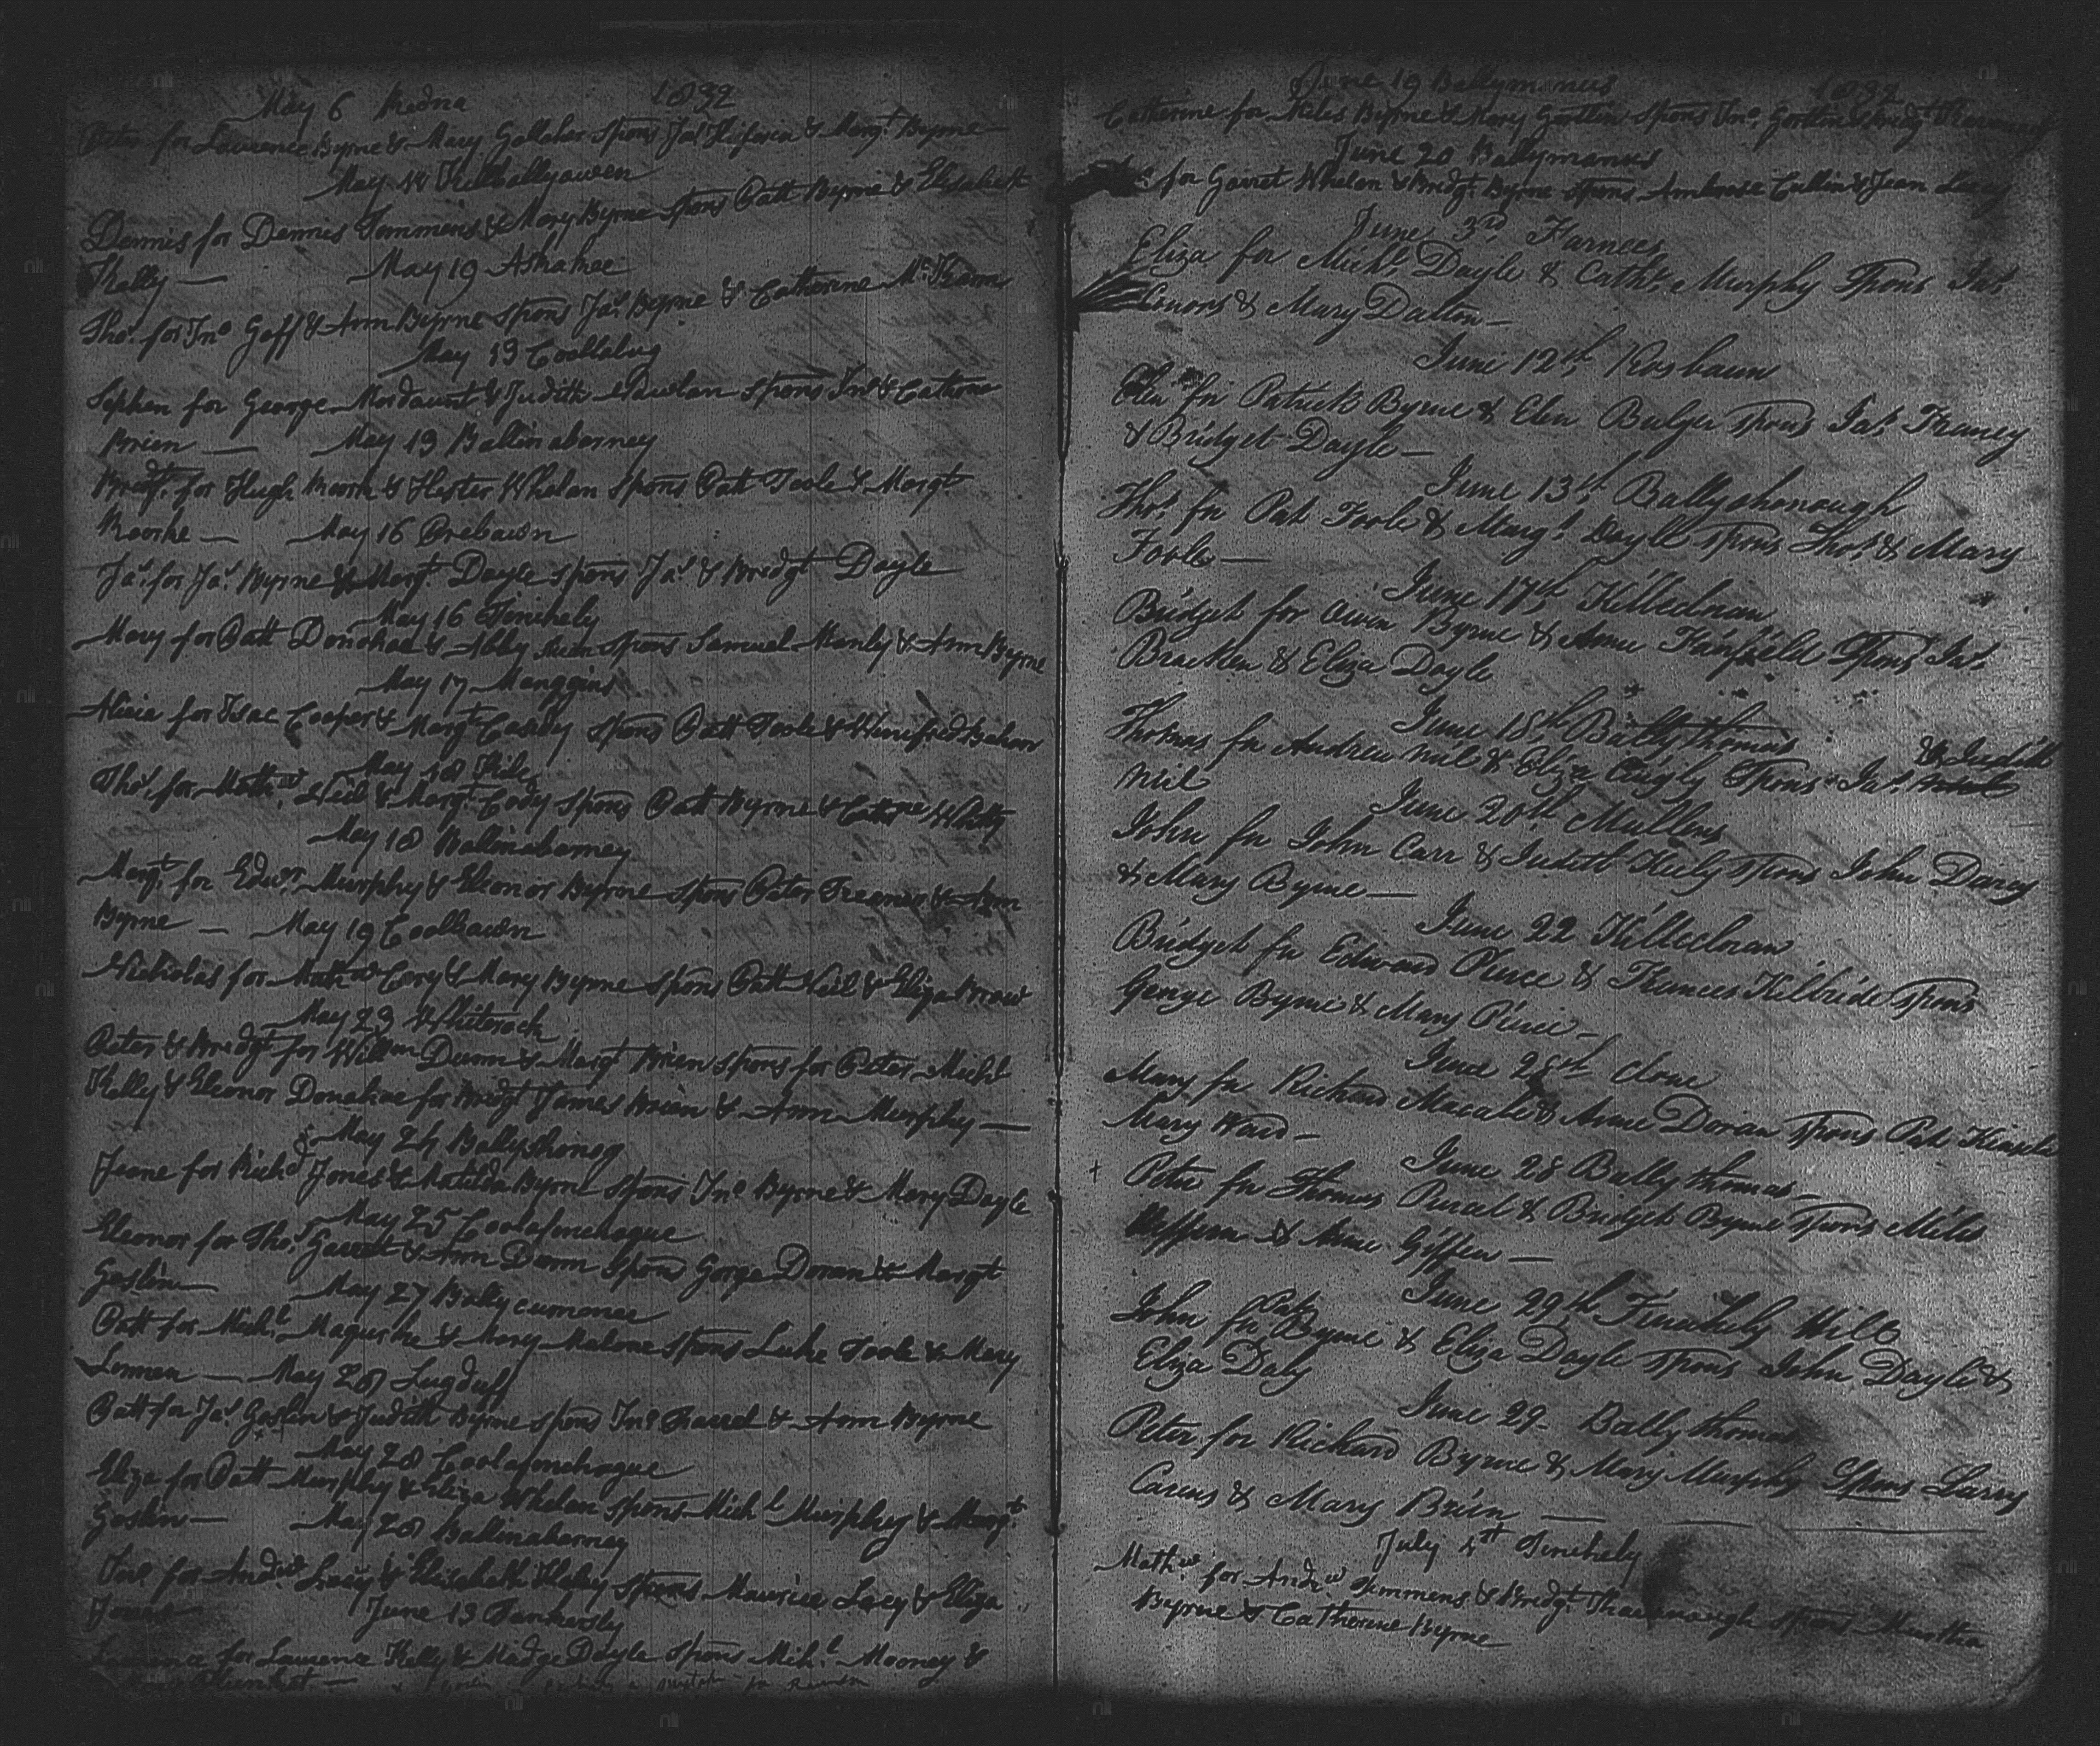 May 6 Medna 1832
Peter for Laurence Byrne & Mary Gallaher Spons Jas Heiferin & Margt Byrne
May 14 Killballyowen
Dennis for Dennis Timmens & Mary Byrne Spons Patt Byrne & Elisabeth
Kelly — May 19 Askakee
Thos. for Jno Goff & Ann Byrne Spons Jas Byrne & Catherine
May 13 Coollalug
Sephen for George Mordaunt & Judith Nawlan Spons Jno & Cathne
Brien — May 13 Ballinabarney
Bridgt. for Hugh & Hester Whelan Spons Patt Toole & Margt
Roorke — May 16 Prebawn
Jas. for Jas. Byrne & Margt Doyle Spons Jas & Bridgt Doyle
May 16 Tinehely
Mary for Patt Donohoe & Abby Spons Samuel Manly & Ann Byrne
May 17 Mangans
Alicia for Isac Cooper & Margt Casidy Spons Patt Toole & Winifred
May 18 Kile
Thos. for Mathw. Neil & Margt Cody Spons Patt Byrne & Cathne Whitty
May 18 Ballinabarney
Margt. for Edwd. Murphy & Eleonor Byrne Spons Peter Freaner & Ann
Byrne — May 19 Coolbawn
Nicholas for Mathw Cory & Mary Byrne Spons Patt Neil & Eliza
May 23 Whiterock
Peter & Bridgt for Willm Dunn & Margt Brien Spons for Peter Michl
Kelly & Eleonor Donohoe for Bridgt James Brien & Ann Murphy —
May 24 Ballyshonog
Jeane for Richd Jones & Matilda Byrne Spons Jno Byrne & Mary Doyle
May 25 Coolafunchogue
Eleonor for Thos. Garrett & Ann Doran Spons Gorge Doran & Margt
Goslin — May 27 Ballycumonee
Patt for Michl. Maguirke & Mary Malone Spons Luke Toole & Mary
Lennon — May 28 Lugduff
Patt for Jas Goslin & Judith Byrne Spons Jno Farrel & Ann Byrne
May 28 Coolafunchogue
Eliza for Patt Murphy & Eliza Whelan Spons Michl Murphy & Margt.
Goslin — May 28 Ballinabarney
Jno. for Andrw Lacy & Elisabeth Haley Spons Maurice Lacy & Eliza
Jones June 13 Tankersly
Laurence for Laurence Kelly & Madge Doyle Spons Michl. Mooney &
Plunket —
June 19 Ballymanus 1832
Catherine for Miles Byrne & Mary Goslin Spons Jno. Goslin & Bridgt
June 20 Ballymanus
for Garret Whelan & Bridgt. Byrne Spons Ambrose Cullin & Jean Lacey
June 3rd Farnees
Eliza for Michl. Doyle & Cathne Murphy Spons Jas
Conors & Mary Dalton —
June 12th Rosbawn
Elen for Patrick Byrne & Elen Bulger Spons Jas
& Bridget Doyle —
June 13th Ballyshonough
Thos. for Pat Toole & Margt Doyle Spons Thos. & Mary
Toole —
June 17th Killeclnan
Bridget for Owen Byrne & Anne Fainfield Spons Jas.
Bracken & Eliza Doyle
June 18th Ballythomas
Thomas for Andrew Neil & Eliza Spons Jas. & Judith
Neil
June 20th Mullens
John for John Carr & Judith Keily Spons John Darcy
& Mary Byrne —
June 22 Killeclnan
Bridget for Edward Pierce & Frances Kilbride Spons
George Byrne & Mary Pierce —
June 28th Clone
Mary for Richard Macabe & Anne Doran Spons Pat Kinsela
Mary Ward —
June 28 Ballythomas —
+ Peter for Thomas Pursel & Bridget Byrne Spons Miles
Heffernn & Anne Giffen —
June 29th Tinehely Hill
John for Pat Byrne & Eliza Doyle Spons John Doyle &
Eliza Daly
June 29 Ballythomas
Peter for Richard Byrne & Mary Murphy Spons Larry
Carens & Mary Brien —
July 1st Tinehely
Mathw for Andrw Timmens & Bridgt. Spons Murtha
Byrne & Catherine Byrne